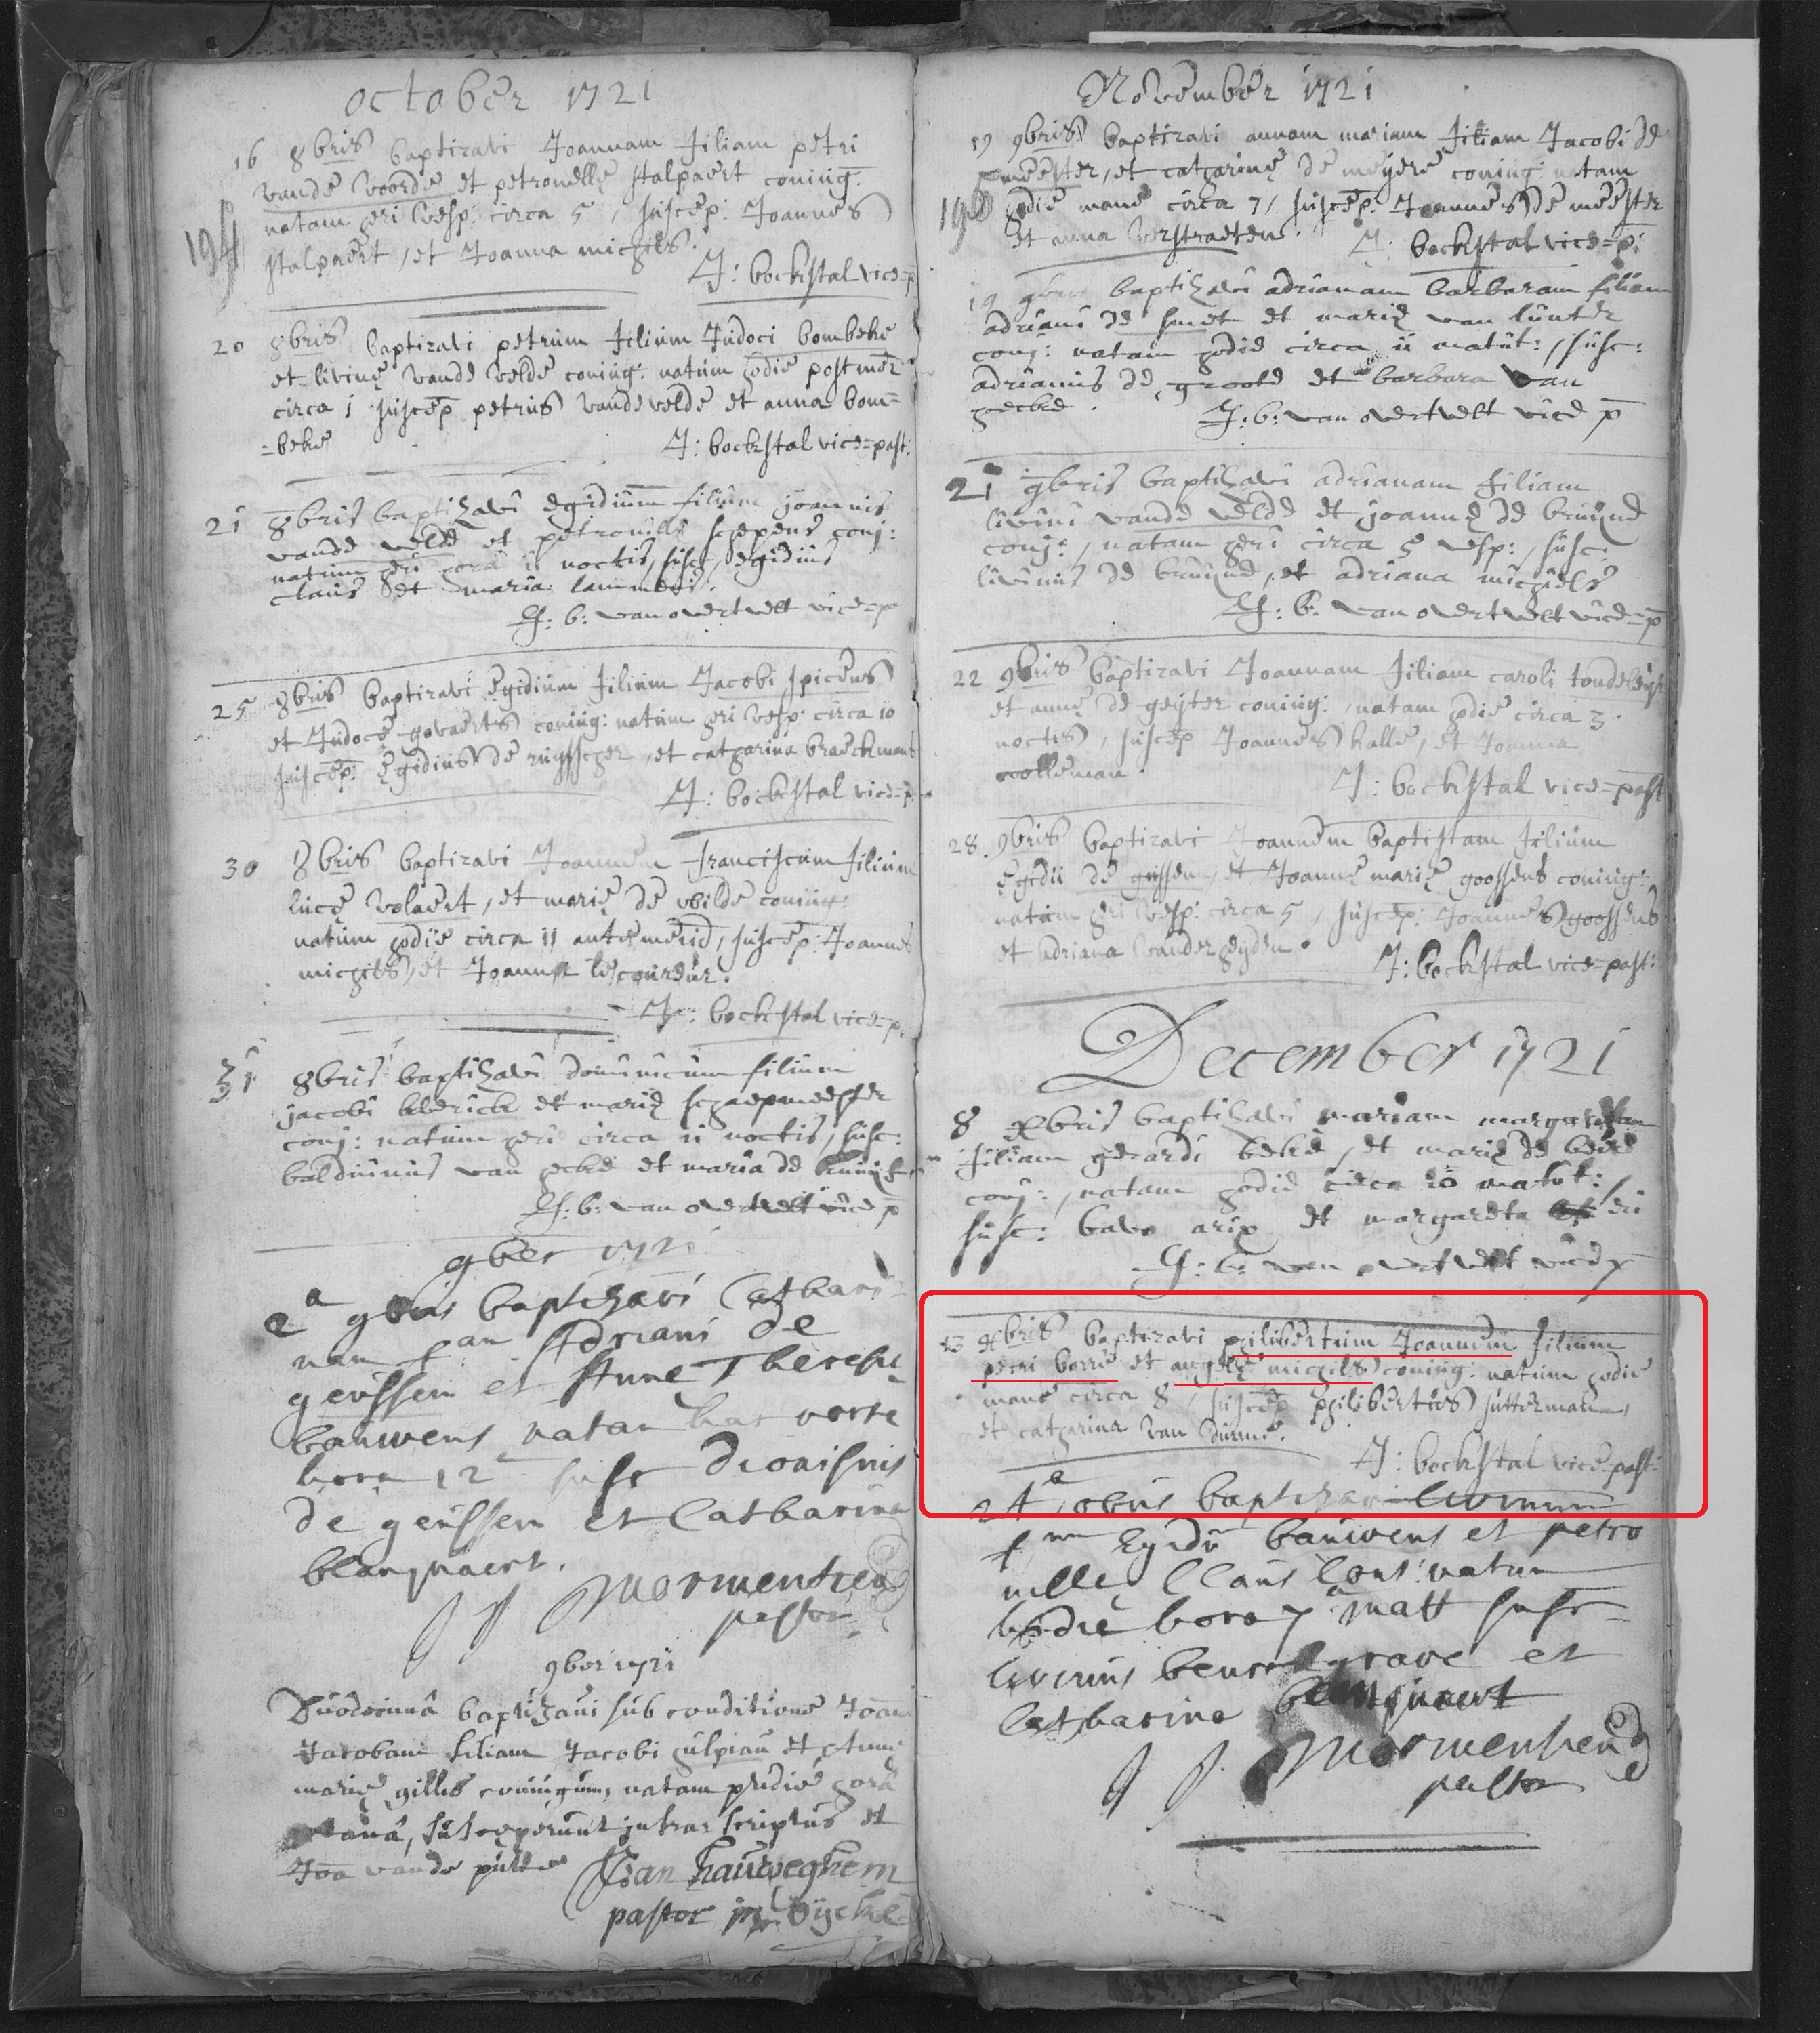 october 1721
16 8bris baptizavi Joannam filiam petri
vande voorde et petronellę stalpaert coniug:
natam heri vesp: circa 5, suscep: Joannes
stalpaert, et Joanna michils.
194
J: bockstal vice=p
20 8bris baptizavi petrum filium Judoci bombeke
et livinę vande velde coniug: natum hodie postmer
circa 1 suscep petrus vande velde et anna bom=
=beke
J: bockstal vice=past:
21 8bris baptizavi egidium filium joannis
vande velde et petronillę schepens conj:
natum heri hora 11 noctis, susc, egidius
claus et maria lammens.
J: b: van overtvelt vice=p
25 8bris baptizavi Egidium filium Jacobi spicens
et Judocę govaerts coniug: natum heri vesp: circa 10
suscep: Egidius de ruysscher, et catharina braeckmans
J: bockstal vice=p:
30 8bris baptizavi Joannem franciscum filium
lucę volaert, et marię de wilde coniug:
natum hodie circa 11 antemerid, suscep: Joannes
michils, et Joanna lescoureur.
J: bockstal vice=p.
31 8bris baptizavi dominicum filium
jacobi kldrick et marię schaepmeester
conj: natum heri circa 11 noctis, susc:
balduinus van hecke et maria de
J: b: van overtvelt vice p
9ber 1721
2a 9bris baptizavi Cathari
nam fam Adriani de
geyssem et Annę Theresię
bauwens natam hac nocte
hora 12 susc dionisius
de geyssem et Catharina
blanquaert.
J J Mormentien
pastor
9ber 1721
Duodecimâ baptizavi sub conditione Joam
Jacobam filiam Jacobi hulpiau et Annę
marię gillis coniugum, natam pridie horâ
, susceperunt infrascriptus et
Joa vande putte Van hauweghem
pastor in
November 1721
17 9bris baptizavi annam mariam filiam Jacobi de
meester, et catharinę de meyere coniug: natam
hodie mane circa 7, suscep: Joannes de meester
et anna verstraeten.
J: bockstal vice=p:
19 9bris baptizavi adrianam barbaram filiam
adriani de smet et marię van lunter
conj: natam hodie circa 11 matut:, susc:
adrianus de groote et barbara van
hecke.
J: b: van overtvelt vice p
21 9bris baptizavi adrianam filiam
livini vande velde et joannę de bruyne
conj:, natam heri circa 5 vesp:, susc:
livinus de bruyne, et adriana michiels
J: b: van overtvelt vice=p
22 9bris baptizavi Joannam filiam caroli tondeleyr
et annę de geyter coniug:, natam hodie circa 3
noctis, suscep Joannes halle, et Joanna
colleman.
J: bockstal vice=past
28. 9bris baptizavi Joannem baptistam filium
Egidii de geyssem, et Joannę marię goossens coniug:
natum heri vesp: circa 5, suscep: Joannes goossens
et adriana vander heyden.
J: bockstal vice=past:
December 1721
8 Xbris baptizavi mariam margaretam
filiam gerardi beke, et marię de beire
conj:, natam hodie circa 10 matut:
susc: bavo arix et margareta
J: b: van overtvelt vice p
13 Xbris baptizavi philibertum Joannem filium
petri borrie et angelę michils coniug: natum hodie
mane circa 8, suscep philibertus suttermans,
et catharina van durme.
J: bockstal vice=past:
24a Xbris baptizavi livinum
fum Egidii bauwens et petro
nillę Claus Conj: natum
hodie hora 7 matt susc
livinus et
Catharina blanquaert
J J. Mormentien
pastor